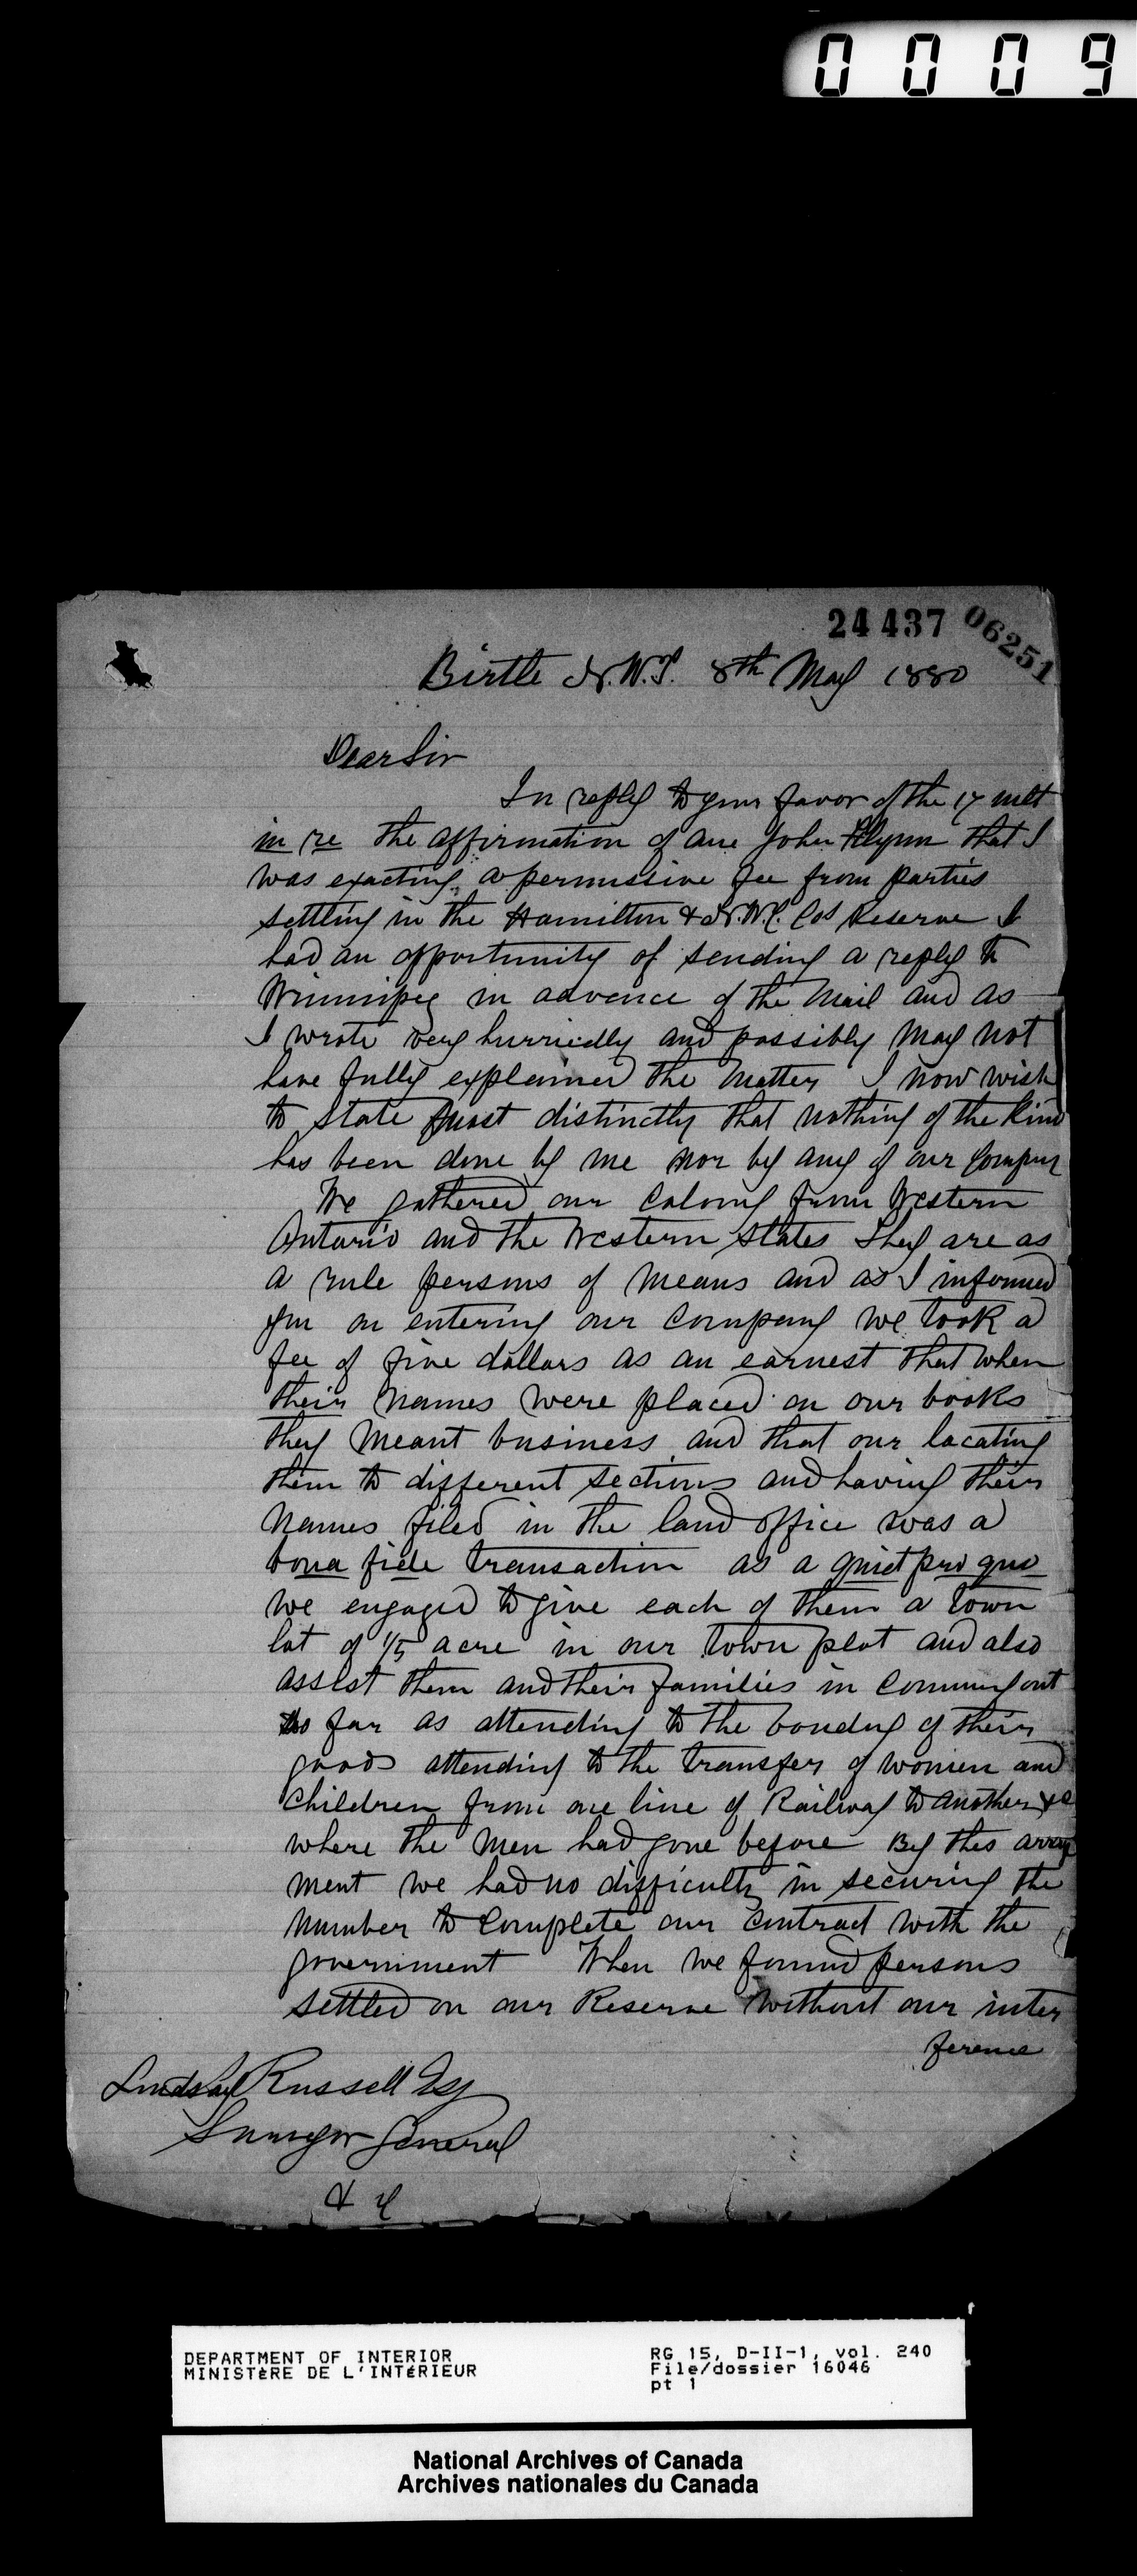 0009
24437 06251
Birtle N.W.T. 8th May 1880
Dear Sir
In reply to your favor of the 17 ult
in re the affirmation of one John Flynn that I
was exacting a permissive fee from parties
settling in the Hamilton & N.W.C. Cos Reserve I
had an opportunity of sending a reply to
Winnipeg in advance of the mail and as
I wrote very hurriedly and possibly may not
have fully explained the matter I now wish
to state most distinctly that nothing of the kind
has been done by me nor by any of our Company
We gathered our Colony from Western
Ontario and the Western States They are as
a rule persons of means and as I informed
you on entering our Company we took a
fee of five dollars as an earnest that when
their names were placed on our books
they meant business and that our locating
them to different sections and having their
names filed in the land office was a
bona fide transaction as a quiet pro quo
we engaged to give each of them a town
lot of 1/5 acre in our town plot and also
assist them and their families in coming out
so far as attending to the bonding of their
goods attending to the transfer of women and
children from one line of Railway to another &c
where the men had gone before By this arrange
ment we had no difficulty in securing the
number to complete our contract with the
government When we found persons
settled on our Reserve without our inter
ference
Lindsay Russell Esq
Surveyor General
& c
DEPARTMENT OF INTERIOR
MINISTÈRE DE L'INTÉRIEUR
RG 15, D-II-1, vol. 240
File/dossier 16046
pt 1
National Archives of Canada
Archives nationales du Canada